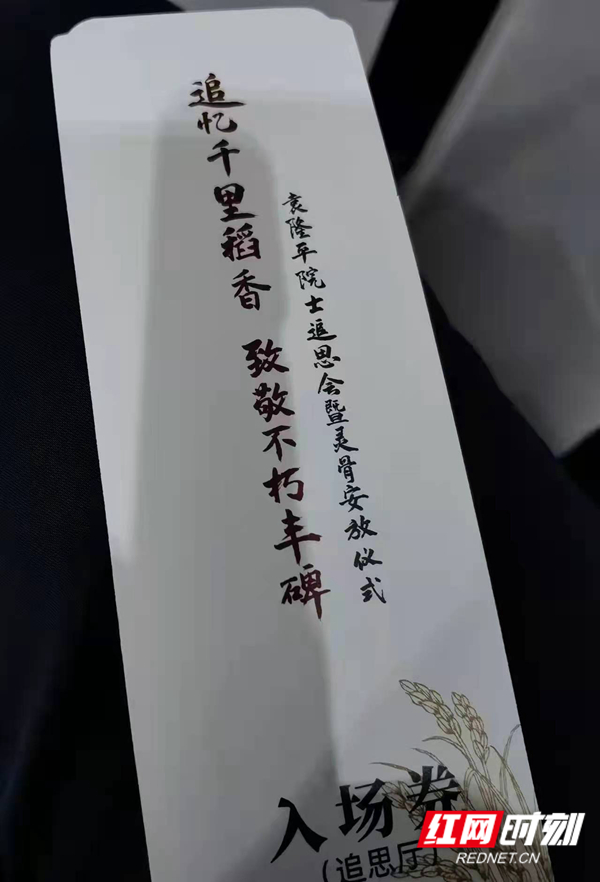 追忆千里稻香 致敬不朽丰碑
袁隆平院士追思会暨灵骨安放仪式
入场券
(追思厅)
红网时刻
REDNET.CN